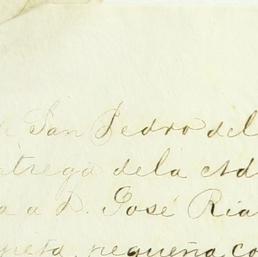 San Pedro del
trega dela ctd
a D. José Ria
pequeña, co